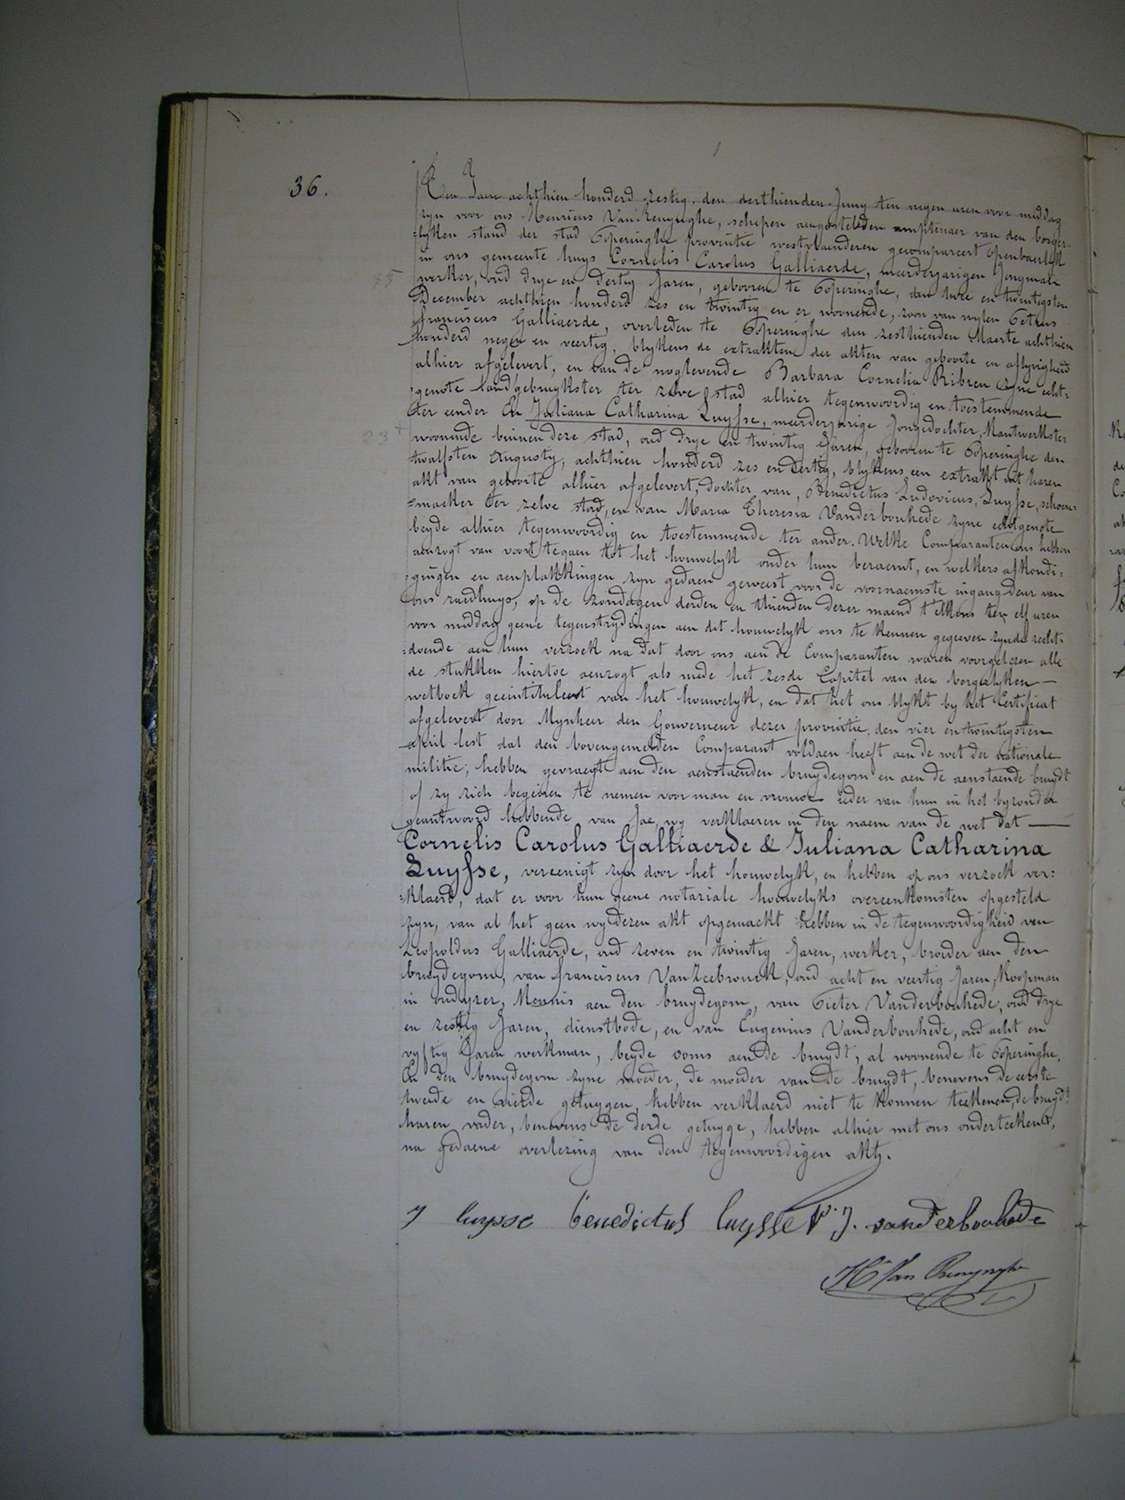 36.
Ten Jaere achthien honderd zestig, den derthienden Juny ten negen uren voor middag
zyn voor ons Henricus Van Renynghe, schepen aengestelden amptenaer van den borger-
lyken stand der stad Poperinghe provintie westvlaenderen gecompareert openbaerlyk
in ons gemeente huys Cornelis Carolus Galliaerde, meerderjarigen Jongman
werker, oud drye en dertig Jaren, geboren te Poperinghe, den twee en twintigsten
December achthien honderd zes en twintig en er woonende, zoon van wylen Petrus
franciscus Galliaerde, overleden te Poperinghe den zesthienden Maerte achthien
honderd negen en veertig, blykens de extrakten der akten van geboorte en aflyvigheid
alhier afgelevert, en van de noglevende Barbara Cornelia Ribreu zyne echt-
genote landgebruykster ter zelve stad alhier tegenwoordig en toestemmende
ter eender En Juliana Catharina Luysse, meerderjarige Jongedochter Kantwerkster
woonende binnen deze stad, oud drye en twintig Jaren, geboren te Poperinghe den
twalfsten Augusty, achthien honderd zes en dertig, blykens een extrakt uit haren
akt van geboorte alhier afgelevert, dochter van, Benedictus Ludovicus, Luysse, schoen-
=maeker ter zelve stad, en van Maria Theresia Vanderbonhede zyne echtgenote
beyde alhier tegenwoordig en toestemmende ter ander. Welke Comparanten ons hebben
aenzogt van voort te gaen tot het houwelyk onder hun beraemt, en welkers afkondi=
=gingen en aenplakkingen zyn gedaen geweest voor de voornaemste ingang deur van
ons raedhuys, op de zondagen derden en thienden dezer maend telkens ten elf uren
voor middag geene tegenstrydingen aen dit houwelyk ons te kennen gegeven zynde recht-
=doende aen hun verzoek na dat door ons aen de Comparanten waren voorgelezen alle
de stukken hiertoe aenzogt als mede het zesde Capitel van den borgerlyken —
wetboek geeintituleert van het houwelyk, en dat het ons blykt by het Certificat
afgelevert door Mynheer den Gouverneur dezer provintie, den vier en twintigsten
april lest dat den bovengemelden Comparant voldaen heeft aen de wet der nationale
militie, hebben gevraegt aen den aenstaenden bruydegom en aen de aenstaende bruydt
of zy zich begeiren te nemen voor man en vrouwe ieder van hun in het byzonder
geantwoord hebbende van Jae, wy verklaeren in den naem van de wet dat —
Cornelis Carolus Galliaerde & Juliana Catharina
Luysse, vereenigt zyn door het houwelyk, en hebben op ons verzoek ver=
=klaerd, dat er voor hun geene notariale houwelyks overeenkomsten opgesteld
zyn, van al het geen wy dezen akt opgemaekt hebben in de tegenwoordigheid van
Leopoldus Galliaerde, oud zeven en twintig Jaren, werker, broeder aen den
bruydegom, van franciscus Van Zeebrouck, oud acht en veertig Jaren, Koopman
in oudyzer, Kennis aen den bruydegom, van Pieter Vanderbonhede, oud drye
en zestig Jaren, dienstbode, en van Eugenius Vanderbonhede, oud acht en
vyftig Jaren werkman, beyde ooms aen de bruydt, al woonende te Poperinghe,
En den bruydegom zyne moeder, de moeder van de bruydt, benevens de eerste
tweede en vierde getuygen, hebben verklaerd niet te konnen teekenen, de bruydt
haren vader, benevens de derde getuyge, hebben alhier met ons onderteekent,
na gedaene overlezing van den tegenwoordigen akt.
J luysse benedictus luysse P. J. vanderbonhede
Hri Van Renynghe